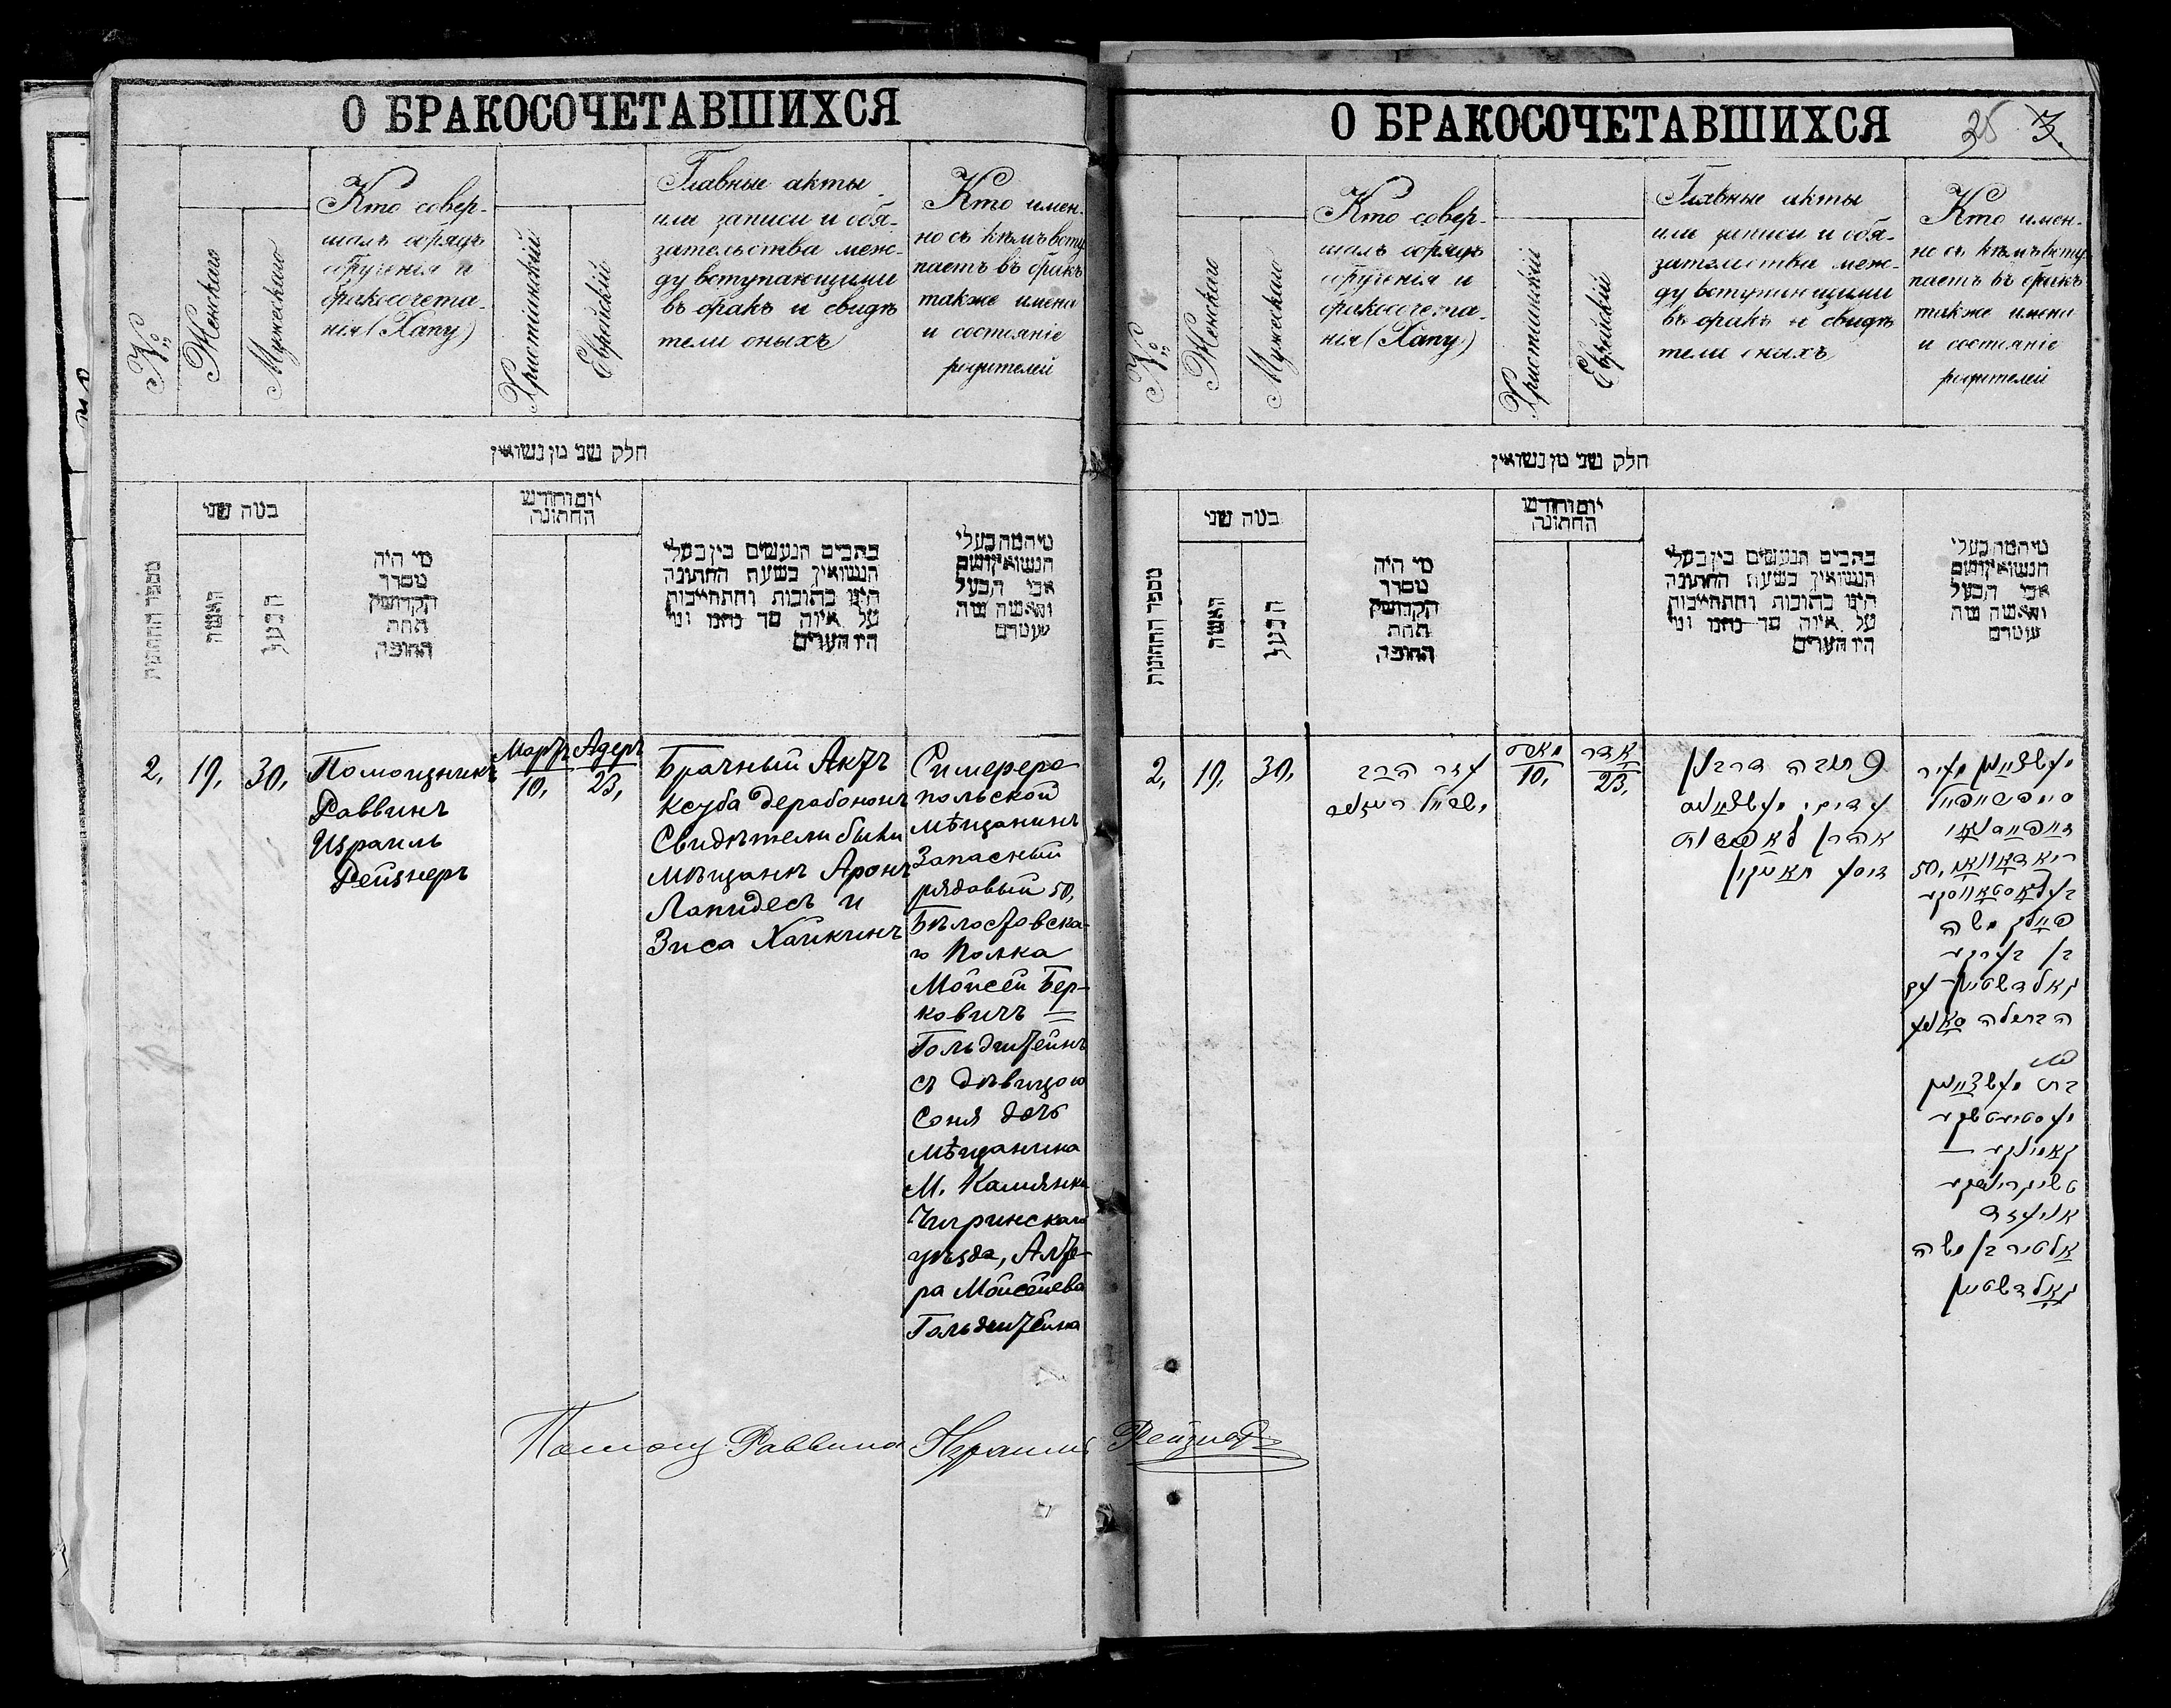 О БРАКОСОЧЕТАВШИХСЯ
№
Женскаго
Мужескаго
Кто совер-
шалъ обрядъ
обрученія и
бракосочета-
нія (Хапу)
Христіанскій
Еврейскій
Главные акты
или записи и обя-
зательства меж-
ду вступающими
въ бракъ и свидѣ
тели оныхъ
Кто имен-
но съ кѣмъ всту
паетъ въ бракъ
также имена
и состояніе
родителей
חלק שני מן נשואין
מספר החתונות
כמה שני
האשה
הבעל
מי היה
מסדר
הקדושין
תחת
החופה
יום וחודש
החתונה
כתבים הנעשים בין בעלי
הנשואין בשעת החתונה
היינו כתובות והתחייבות
על איזה סך נתנו ומי
היו העדים
מי המה בעלי
הנשואין ושם
אבי הבעל
והאשה ומה
מעמדם
2,
19,
30,
Помощникъ
Раввинъ
Израиль
Рейзнеръ
Мартъ
10,
Адеръ
23,
Брачный Актъ
Ксуба дерабононъ
Свидѣтели были
мѣщане Аронъ
Лапидесъ и
Зиса Хайкинъ
Симферо
польской
мѣщанинъ
Запасный
рядовый 50,
Бѣлостовска-
го Полка
Мойсей Бер-
ковичъ =
Гольдштейнъ
съ дѣвицою
Соня дочь
мѣщанина
М. Камянки
Чигринскаго
уѣзда, Алте-
ра Мойсеева
Гольдштейна
Помощ Раввина Израиль Рейзнеръ
О БРАКОСОЧЕТАВШИХСЯ
3.
№
Женскаго
Мужескаго
Кто совер-
шалъ обрядъ
обрученія и
бракосочета-
нія (Хапу)
Христіанскій
Еврейскій
Главные акты
или записи и обя-
зательства меж-
ду вступающими
въ бракъ и свидѣ
тели оныхъ
Кто имен-
но съ кѣмъ всту
паетъ въ бракъ
также имена
и состояніе
родителей
חלק שני מן נשואין
מספר החתונות
כמה שני
האשה
הבעל
מי היה
מסדר
הקדושין
תחת
החופה
יום וחודש
החתונה
כתבים הנעשים בין בעלי
הנשואין בשעת החתונה
היינו כתובות והתחייבות
על איזה סך נתנו ומי
היו העדים
מי המה בעלי
הנשואין ושם
אבי הבעל
והאשה ומה
מעמדם
2,
19,
30,
עזר הרב
ישראל רייזנער
מארט
10,
אדר
23,
כתובה דרבנן
אהרן לאפידוס
סימפעראפאל
50,
ביעלאסטאווסקי
פאלק משה
בן בערקא
גאלדשטיין עם
הבתולה סאניע
בת
קאמינקי
אלטער בן משה
גאלדשטיין